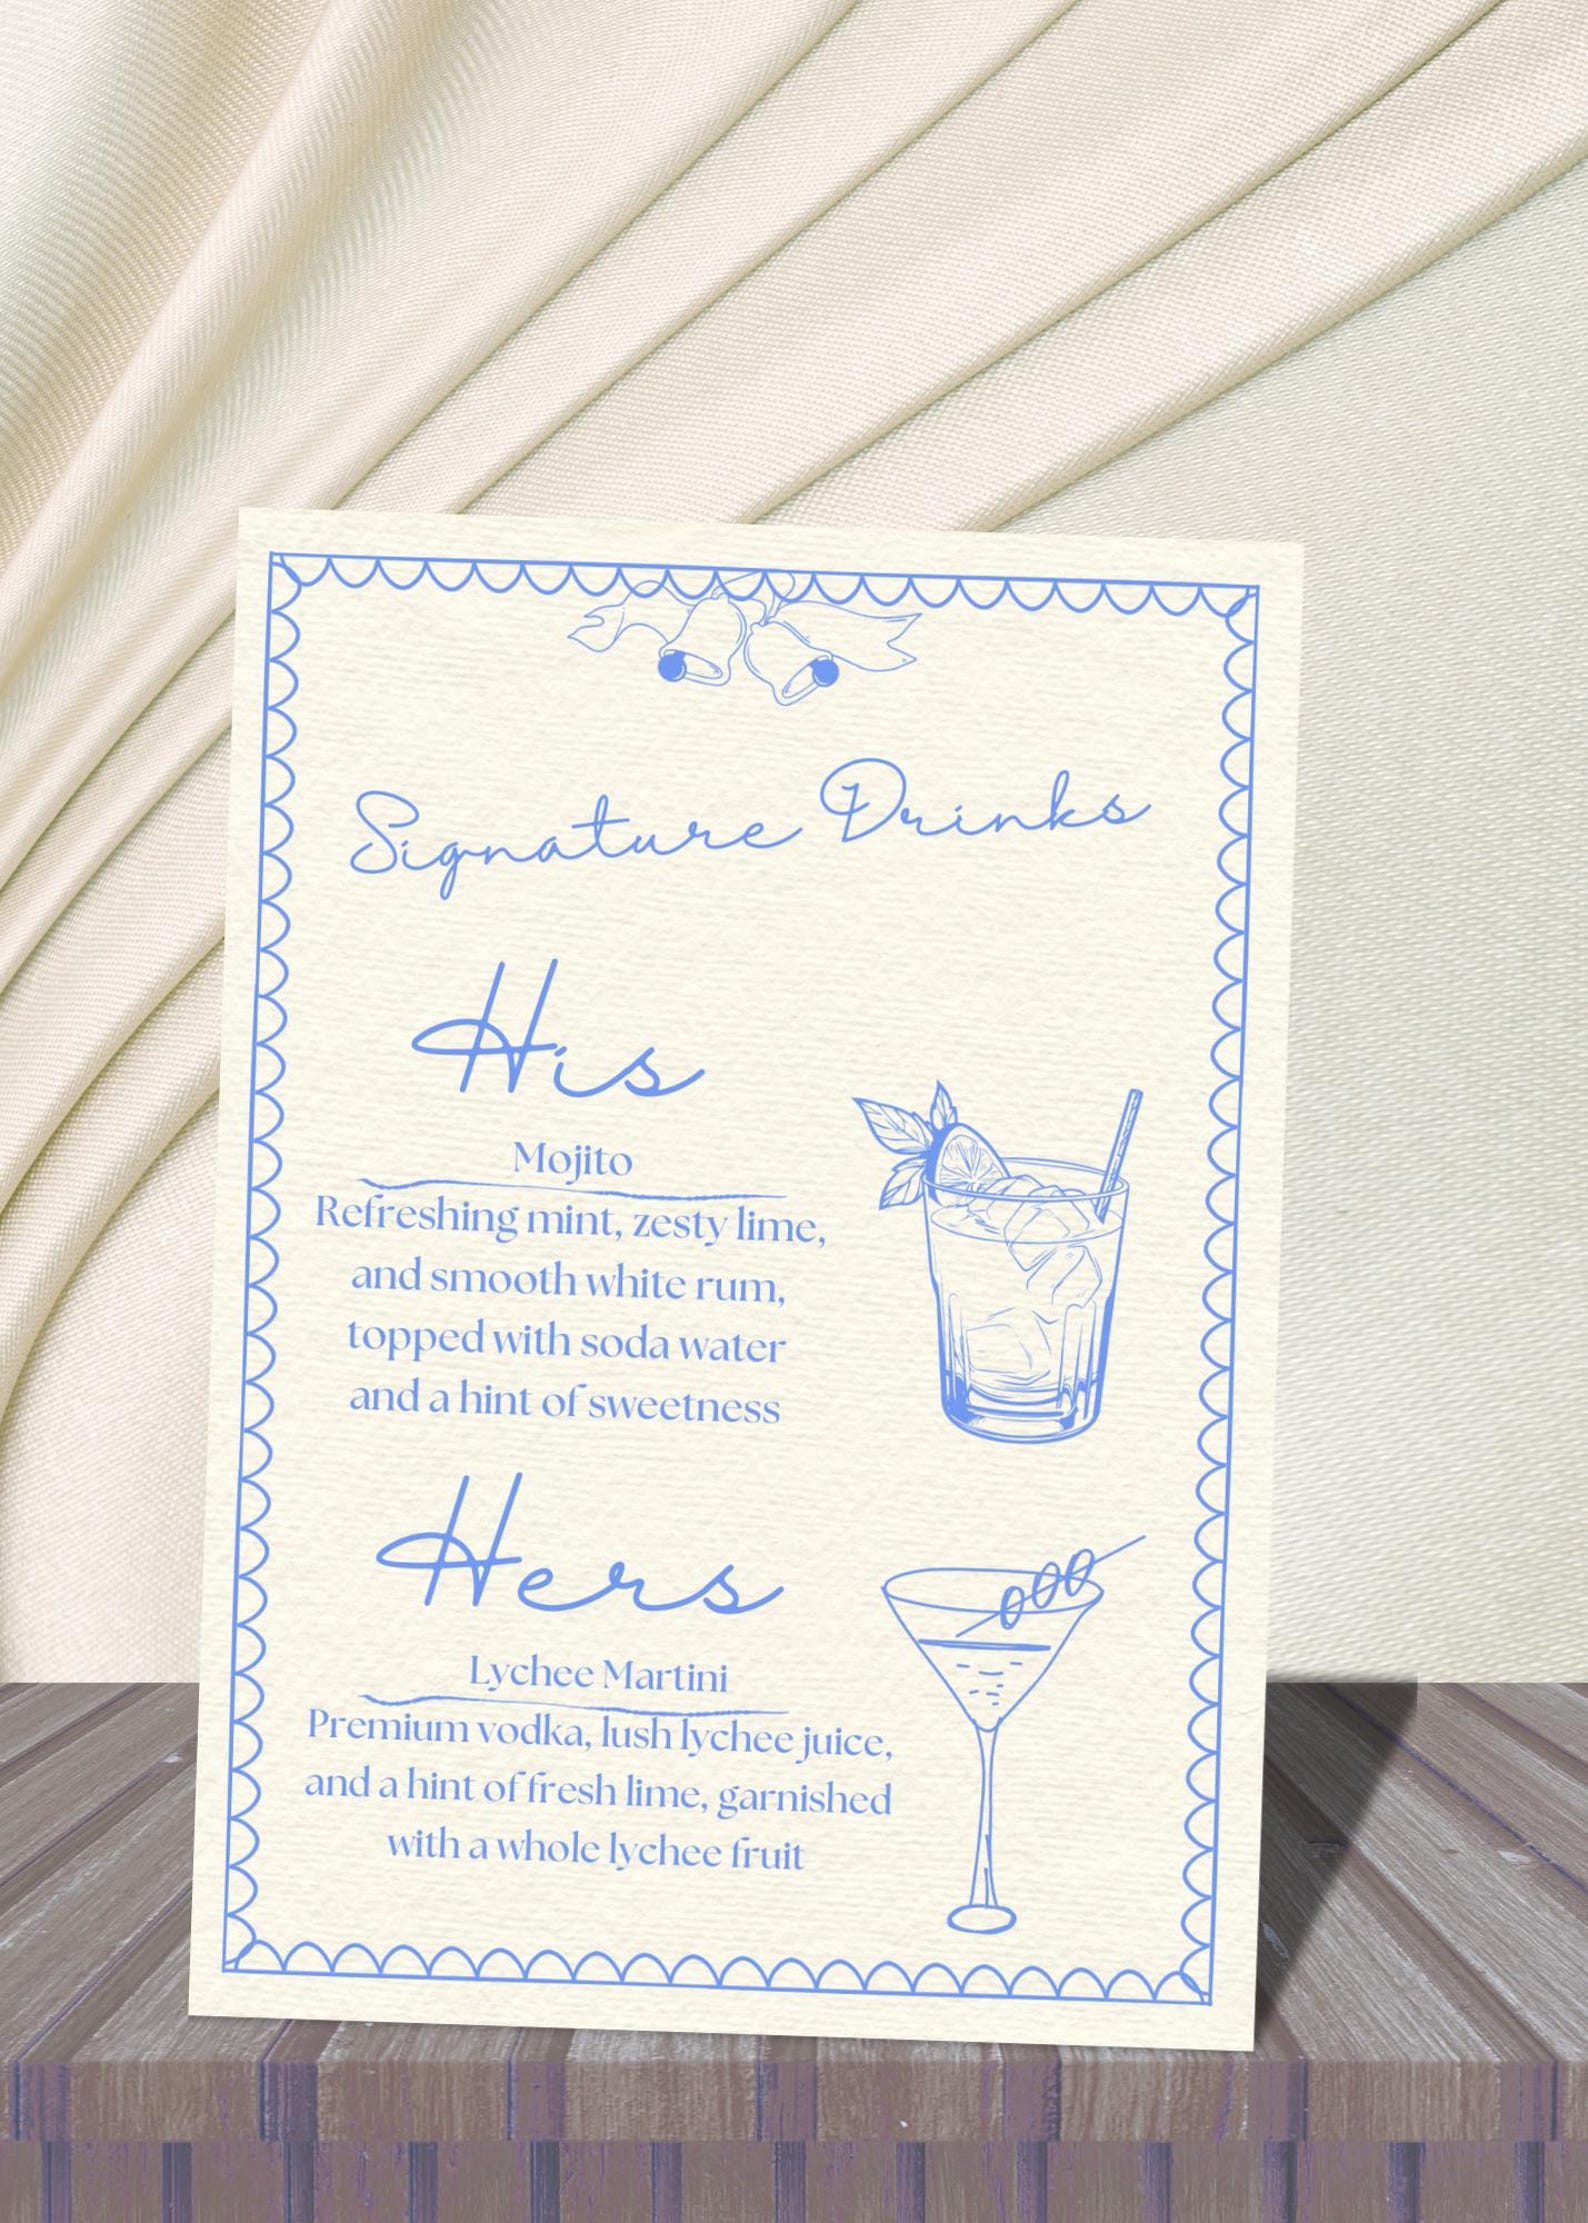 Signature Drinks
His
Mojito
Refreshing mint, zesty lime,
and smooth white rum,
topped with soda water
and a hint of sweetness
Hers
Lychee Martini
Premium vodka, lush lychee juice,
and a hint of fresh lime, garnished
with a whole lychee fruit